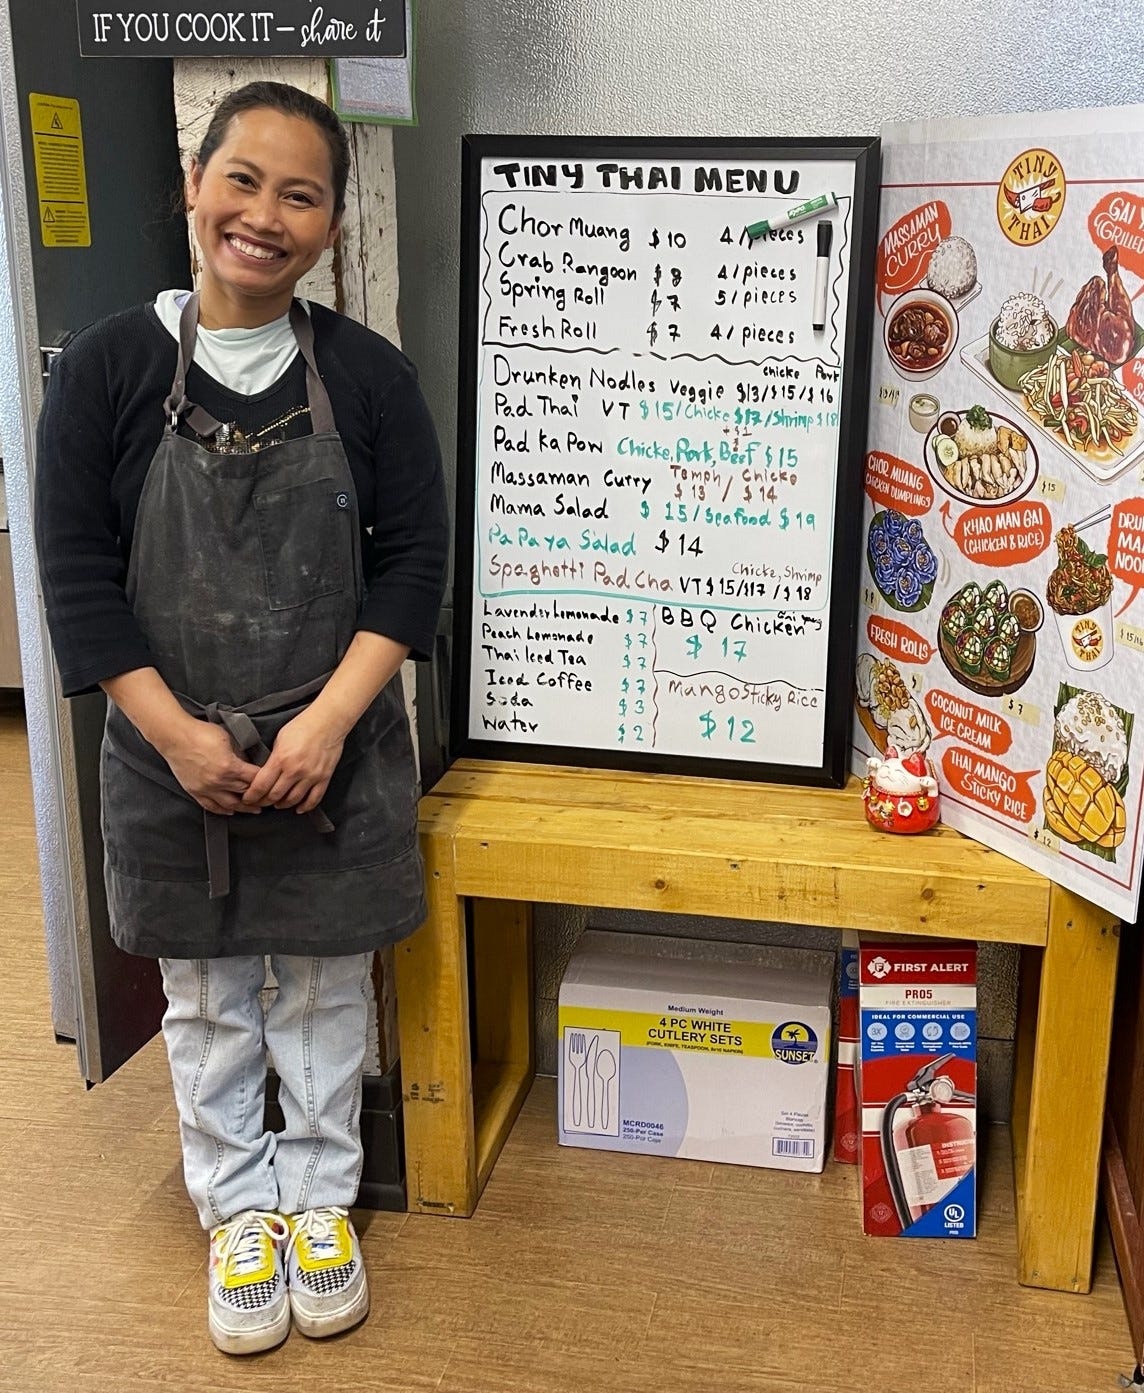 IF YOU COOK IT – share it
TINY THAI MENU
Chor Muang $10 4/pieces
Crab Rangoon $8 4/pieces
Spring Roll $7 5/pieces
Fresh Roll $7 4/pieces
chicke Pork
Drunken Nodles Veggie $13/$15/$16
Pad Thai VT $15/Chicke $17/Shrimp $18
+ $1
Pad Ka Pow Chicke, Pork, Beef $15
Massaman Curry Temph $13 / Chicke $14
Mama Salad $15/Seafood $19
Papaya Salad $14
Chicke, Shrimp
Spaghetti Pad Cha VT $15/$17/$18
Lavender Lemonade $7
Peach Lemonade $7
Thai Iced Tea $7
Iced Coffee $7
Soda $3
Water $2
BBQ Chicken
$17
Mango Sticky Rice
$12
TINY
THAI
MASSAMAN
CURRY
GAI
(GRILLE
CHOR MUANG
(CHICKEN DUMPLINGS)
$15
KHAO MAN GAI
(CHICKEN & RICE)
DRU
NOO
$8
FRESH ROLLS
$7
TINY
THAI
$15/16
COCONUT MILK
ICE CREAM
THAI MANGO
STICKY RICE
$12
Medium Weight
4 PC WHITE
CUTLERY SETS
(FORK, KNIFE, TEASPOON, NAPKIN)
SUNSET
MCRD0046
250-Per Case
FIRST ALERT
PRO5
FIRE EXTINGUISHER
IDEAL FOR COMMERCIAL USE
INSTRUC
UL
LISTED